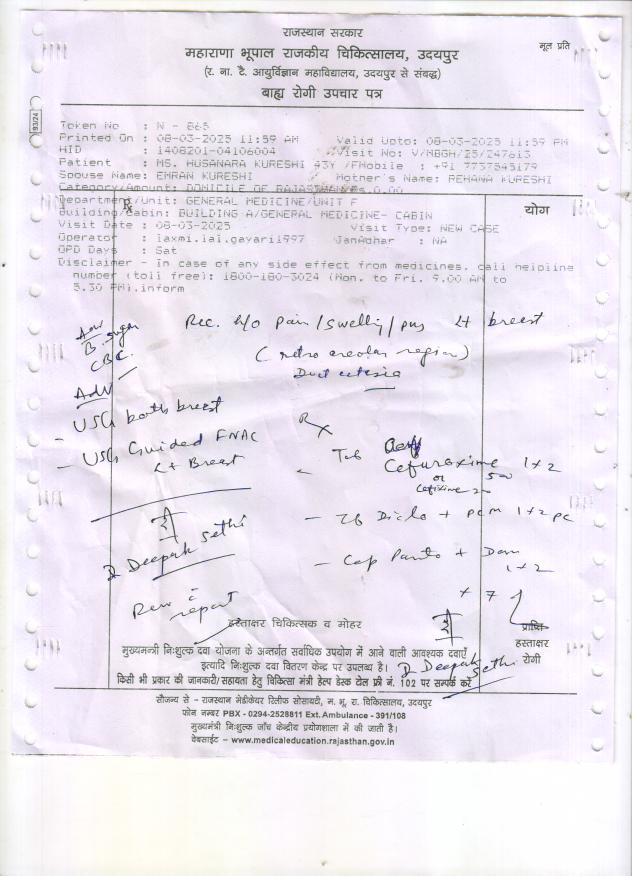 राजस्थान सरकार
महाराणा भूपाल राजकीय चिकित्सालय, उदयपुर
मूल प्रति
(र. ना. टै. आयुर्विज्ञान महाविद्यालय, उदयपुर से संबद्ध)
बाह्य रोगी उपचार पत्र
93/24
Token No : N - 865
Printed On : 08-03-2025 11:59 AM Valid Upto: 08-03-2025 11:59 PM
HID : 1408201-04106004 Visit No: V/MBGH/25/247613
Patient : MS. HUSANARA KURESHI 43Y /F Mobile : +91 7737545179
Spouse Name: EMRAN KURESHI Mother's Name: REHANA KURESHI
Category/Amount: DOMICILE OF RAJASTHAN/Rs.0.00
Department/Unit: GENERAL MEDICINE/UNIT F
योग
Building/Cabin: BUILDING A/GENERAL MEDICINE- CABIN
Visit Date : 08-03-2025 Visit Type: NEW CASE
Operator : laxmi.lal.gayari1997 JanAdhar : NA
OPD Days : Sat
Disclaimer - In case of any side effect from medicines, call helpline
number (toll free): 1800-180-3024 (Mon. to Fri. 9.00 AM to
5.30 PM).inform
Adv
B. sugar
CBC
Rec. h/o pain/swelling/pus Lt breast
(retro areolar region)
Duct ectasia
Adv
- USG both breast
- USG Guided FNAC
Lt Breast
Rx
- Tab Cefuroxime 1x2
500
or
Cefixime 200
- Tb Diclo + PCM 1x2 pc
- Cap Panto + Dom
1x2
x 7
Dr Deepak Sethi
Rev c
report
हस्ताक्षर चिकित्सक व मोहर
प्राप्ति
हस्ताक्षर
रोगी
मुख्यमन्त्री निःशुल्क दवा योजना के अन्तर्गत सर्वाधिक उपयोग में आने वाली आवश्यक दवाएँ
इत्यादि निःशुल्क दवा वितरण केन्द्र पर उपलब्ध है।
Dr Deepak Sethi
किसी भी प्रकार की जानकारी/सहायता हेतु चिकित्सा मंत्री हेल्प डेस्क टोल फ्री नं. 102 पर सम्पर्क करें
सौजन्य से - राजस्थान मेडीकेयर रिलीफ सोसायटी, म. भू. रा. चिकित्सालय, उदयपुर
फोन नम्बर PBX - 0294-2528811 Ext. Ambulance - 391/108
मुख्यमंत्री निःशुल्क जाँच केन्द्रीय प्रयोगशाला में की जाती है।
वेबसाईट – www.medicaleducation.rajasthan.gov.in